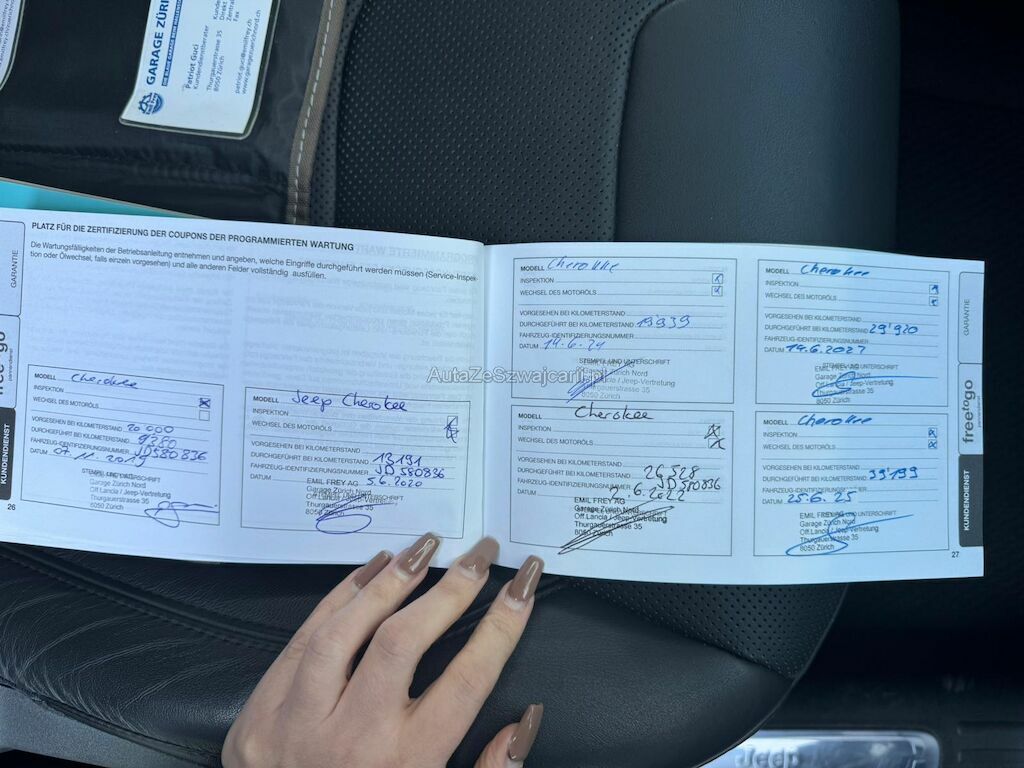 GARAGE ZÜRI
Patriot Guci
Kundendienstberater
Thurgauerstrasse 35
8050 Zürich
patriot.guci@emilfrey.ch
www.garagezuerichnord.ch
PLATZ FÜR DIE ZERTIFIZIERUNG DER COUPONS DER PROGRAMMIERTEN WARTUNG
Die Wartungsfälligkeiten der Betriebsanleitung entnehmen und angeben, welche Eingriffe durchgeführt werden müssen (Service-Inspek-
tion oder Ölwechsel, falls einzeln vorgesehen) und alle anderen Felder vollständig ausfüllen.
GARANTIE
free to go
KUNDENDIENST
MODELL Cherokee
INSPEKTION
WECHSEL DES MOTORÖLS
VORGESEHEN BEI KILOMETERSTAND 20 000
DURCHGEFÜHRT BEI KILOMETERSTAND 9280
FAHRZEUG-IDENTIFIZIERUNGSNUMMER JD580836
DATUM 07.11.2019
STEMPEL UND UNTERSCHRIFT
Garage Zürich Nord
Off.Lancia / Jeep-Vertretung
Thurgauerstrasse 35
8050 Zürich
26
MODELL Jeep Cherokee
INSPEKTION
WECHSEL DES MOTORÖLS
VORGESEHEN BEI KILOMETERSTAND
DURCHGEFÜHRT BEI KILOMETERSTAND 13191
FAHRZEUG-IDENTIFIZIERUNGSNUMMER JD580836
DATUM 5.6.2020
EMIL FREY AG
Garage Zürich Nord
Off.Lancia / Jeep-Vertretung
Thurgauerstrasse 35
8050
MODELL Cherokee
INSPEKTION
WECHSEL DES MOTORÖLS
VORGESEHEN BEI KILOMETERSTAND
DURCHGEFÜHRT BEI KILOMETERSTAND 19939
FAHRZEUG-IDENTIFIZIERUNGSNUMMER
DATUM 14.6.21
STEMPEL UND UNTERSCHRIFT
Lancia / Jeep-Vertretung
Thurgauerstrasse 35
8050 Zürich
AutaZeSzwajcarii.pl
MODELL Cherokee
INSPEKTION
WECHSEL DES MOTORÖLS
VORGESEHEN BEI KILOMETERSTAND
DURCHGEFÜHRT BEI KILOMETERSTAND 26528
FAHRZEUG-IDENTIFIZIERUNGSNUMMER JD580836
DATUM 6.2022
EMIL FREY AG
Garage Zürich Nord
Off.Lancia / Jeep-Vertretung
Thurgauerstrasse 35
8050 Zürich
MODELL Cherokee
INSPEKTION
WECHSEL DES MOTORÖLS
VORGESEHEN BEI KILOMETERSTAND
DURCHGEFÜHRT BEI KILOMETERSTAND 29'920
FAHRZEUG-IDENTIFIZIERUNGSNUMMER
DATUM 14.6.2023
EMIL FREY AG
Garage Zürich Nord
Off.Lancia / Jeep-Vertretung
Thurgauerstrasse 35
8050 Zürich
MODELL Cherokee
INSPEKTION
WECHSEL DES MOTORÖLS
VORGESEHEN BEI KILOMETERSTAND
DURCHGEFÜHRT BEI KILOMETERSTAND 35'199
FAHRZEUG-IDENTIFIZIERUNGSNUMMER
DATUM 25.6.25
EMIL FREY AG UND UNTERSCHRIFT
Garage Zürich Nord
Off.Lancia / Jeep-Vertretung
Thurgauerstrasse 35
8050 Zürich
GARANTIE
free to go
KUNDENDIENST
27
Jeep